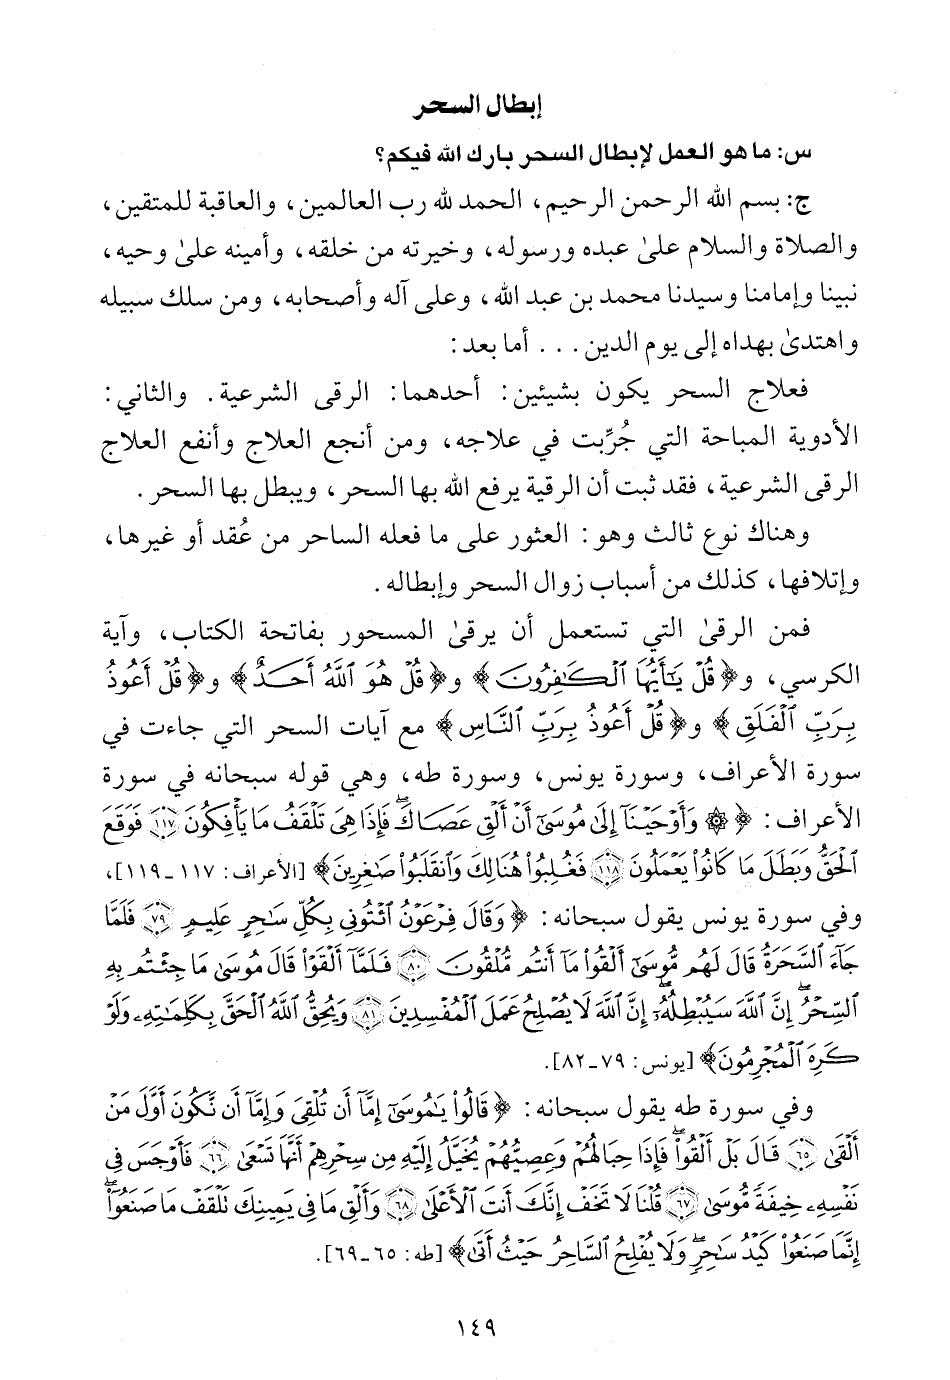 إبطال السحر
س: ما هو العمل لإبطال السحر بارك الله فيكم؟
ج: بسم الله الرحمن الرحيم، الحمد لله رب العالمين، والعاقبة للمتقين،
والصلاة والسلام علىٰ عبده ورسوله، وخيرته من خلقه، وأمينه علىٰ وحيه،
نبينا وإمامنا وسيدنا محمد بن عبد الله، وعلى آله وأصحابه، ومن سلك سبيله
واهتدىٰ بهداه إلى يوم الدين . . . أما بعد:
فعلاج السحر يكون بشيئين: أحدهما: الرقى الشرعية. والثاني:
الأدوية المباحة التي جُرِّبت في علاجه، ومن أنجع العلاج وأنفع العلاج
الرقى الشرعية، فقد ثبت أن الرقية يرفع الله بها السحر، ويبطل بها السحر.
وهناك نوع ثالث وهو: العثور على ما فعله الساحر من عُقد أو غيرها،
وإتلافها، كذلك من أسباب زوال السحر وإبطاله.
فمن الرقىٰ التي تستعمل أن يرقىٰ المسحور بفاتحة الكتاب، وآية
الكرسي، و﴿قُلْ يَٰٓأَيُّهَا ٱلْكَٰفِرُونَ﴾ و﴿قُلْ هُوَ ٱللَّهُ أَحَدٌ﴾ و﴿قُلْ أَعُوذُ
بِرَبِّ ٱلْفَلَقِ﴾ و﴿قُلْ أَعُوذُ بِرَبِّ ٱلنَّاسِ﴾ مع آيات السحر التي جاءت في
سورة الأعراف، وسورة يونس، وسورة طه، وهي قوله سبحانه في سورة
الأعراف: ﴿۞ وَأَوْحَيْنَآ إِلَىٰ مُوسَىٰٓ أَنْ أَلْقِ عَصَاكَۖ فَإِذَا هِىَ تَلْقَفُ مَا يَأْفِكُونَ ١١٧ فَوَقَعَ
ٱلْحَقُّ وَبَطَلَ مَا كَانُوا۟ يَعْمَلُونَ ١١٨ فَغُلِبُوا۟ هُنَالِكَ وَٱنقَلَبُوا۟ صَٰغِرِينَ﴾ [الأعراف: ١١٧ـ١١٩]،
وفي سورة يونس يقول سبحانه: ﴿وَقَالَ فِرْعَوْنُ ٱئْتُونِى بِكُلِّ سَٰحِرٍ عَلِيمٍ ٧٩ فَلَمَّا
جَآءَ ٱلسَّحَرَةُ قَالَ لَهُم مُّوسَىٰٓ أَلْقُوا۟ مَآ أَنتُم مُّلْقُونَ ٨٠ فَلَمَّآ أَلْقَوْا۟ قَالَ مُوسَىٰ مَا جِئْتُم بِهِ
ٱلسِّحْرُۖ إِنَّ ٱللَّهَ سَيُبْطِلُهُۥٓۖ إِنَّ ٱللَّهَ لَا يُصْلِحُ عَمَلَ ٱلْمُفْسِدِينَ ٨١ وَيُحِقُّ ٱللَّهُ ٱلْحَقَّ بِكَلِمَٰتِهِۦ وَلَوْ
كَرِهَ ٱلْمُجْرِمُونَ﴾ [يونس: ٧٩ـ٨٢].
وفي سورة طه يقول سبحانه: ﴿قَالُوا۟ يَٰمُوسَىٰٓ إِمَّآ أَن تُلْقِىَ وَإِمَّآ أَن نَّكُونَ أَوَّلَ مَنْ
أَلْقَىٰ ٦٥ قَالَ بَلْ أَلْقُوا۟ۖ فَإِذَا حِبَالُهُمْ وَعِصِيُّهُمْ يُخَيَّلُ إِلَيْهِ مِن سِحْرِهِمْ أَنَّهَا تَسْعَىٰ ٦٦ فَأَوْجَسَ فِى
نَفْسِهِۦ خِيفَةً مُّوسَىٰ ٦٧ قُلْنَا لَا تَخَفْ إِنَّكَ أَنتَ ٱلْأَعْلَىٰ ٦٨ وَأَلْقِ مَا فِى يَمِينِكَ تَلْقَفْ مَا صَنَعُوٓا۟ۖ
إِنَّمَا صَنَعُوا۟ كَيْدُ سَٰحِرٍۖ وَلَا يُفْلِحُ ٱلسَّاحِرُ حَيْثُ أَتَىٰ﴾ [طه: ٦٥ـ٦٩].
١٤٩